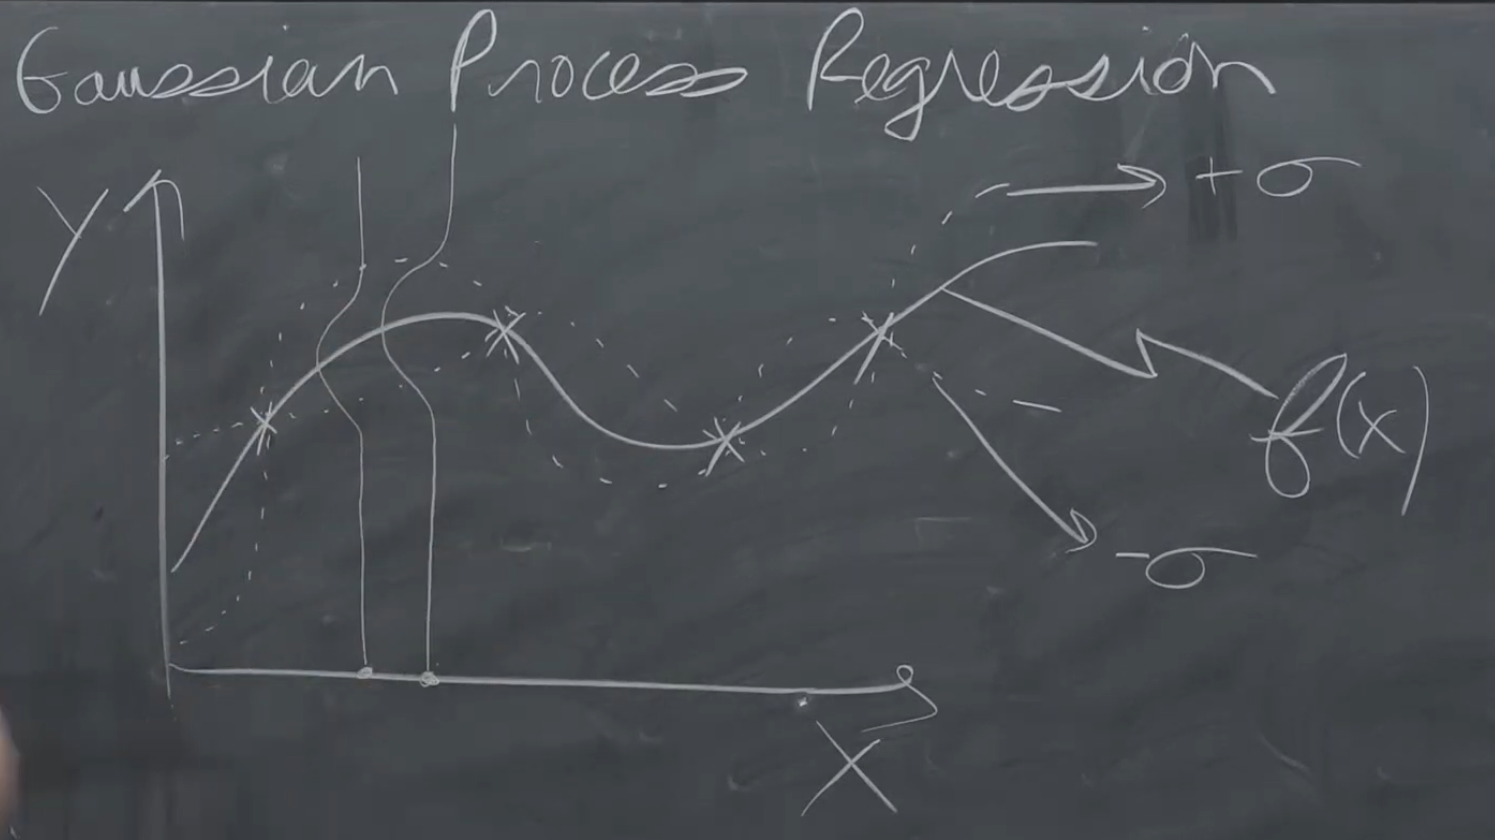 Gaussian Process Regression
Y
+σ
f(x)
-σ
X